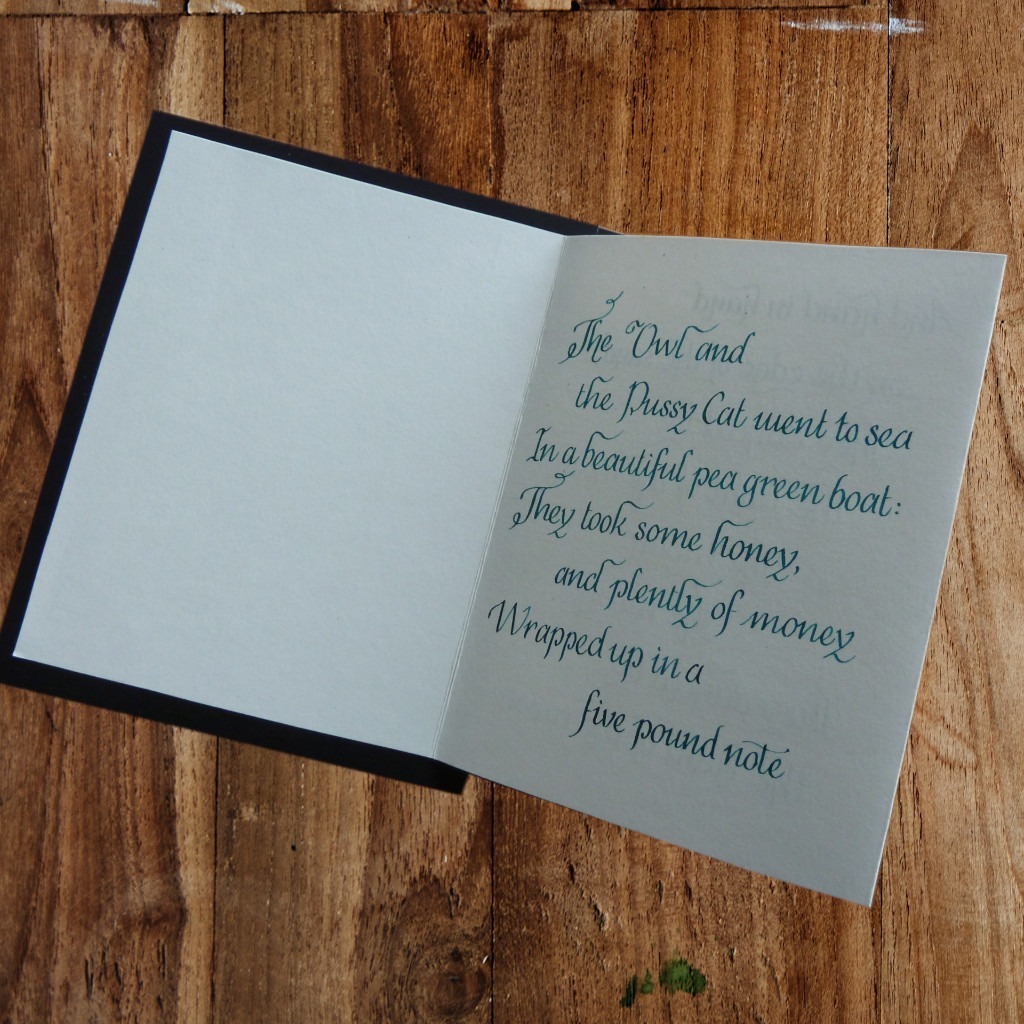 The Owl and
the Pussy Cat went to sea
In a beautiful pea green boat:
They took some honey,
and plently of money
Wrapped up in a
five pound note